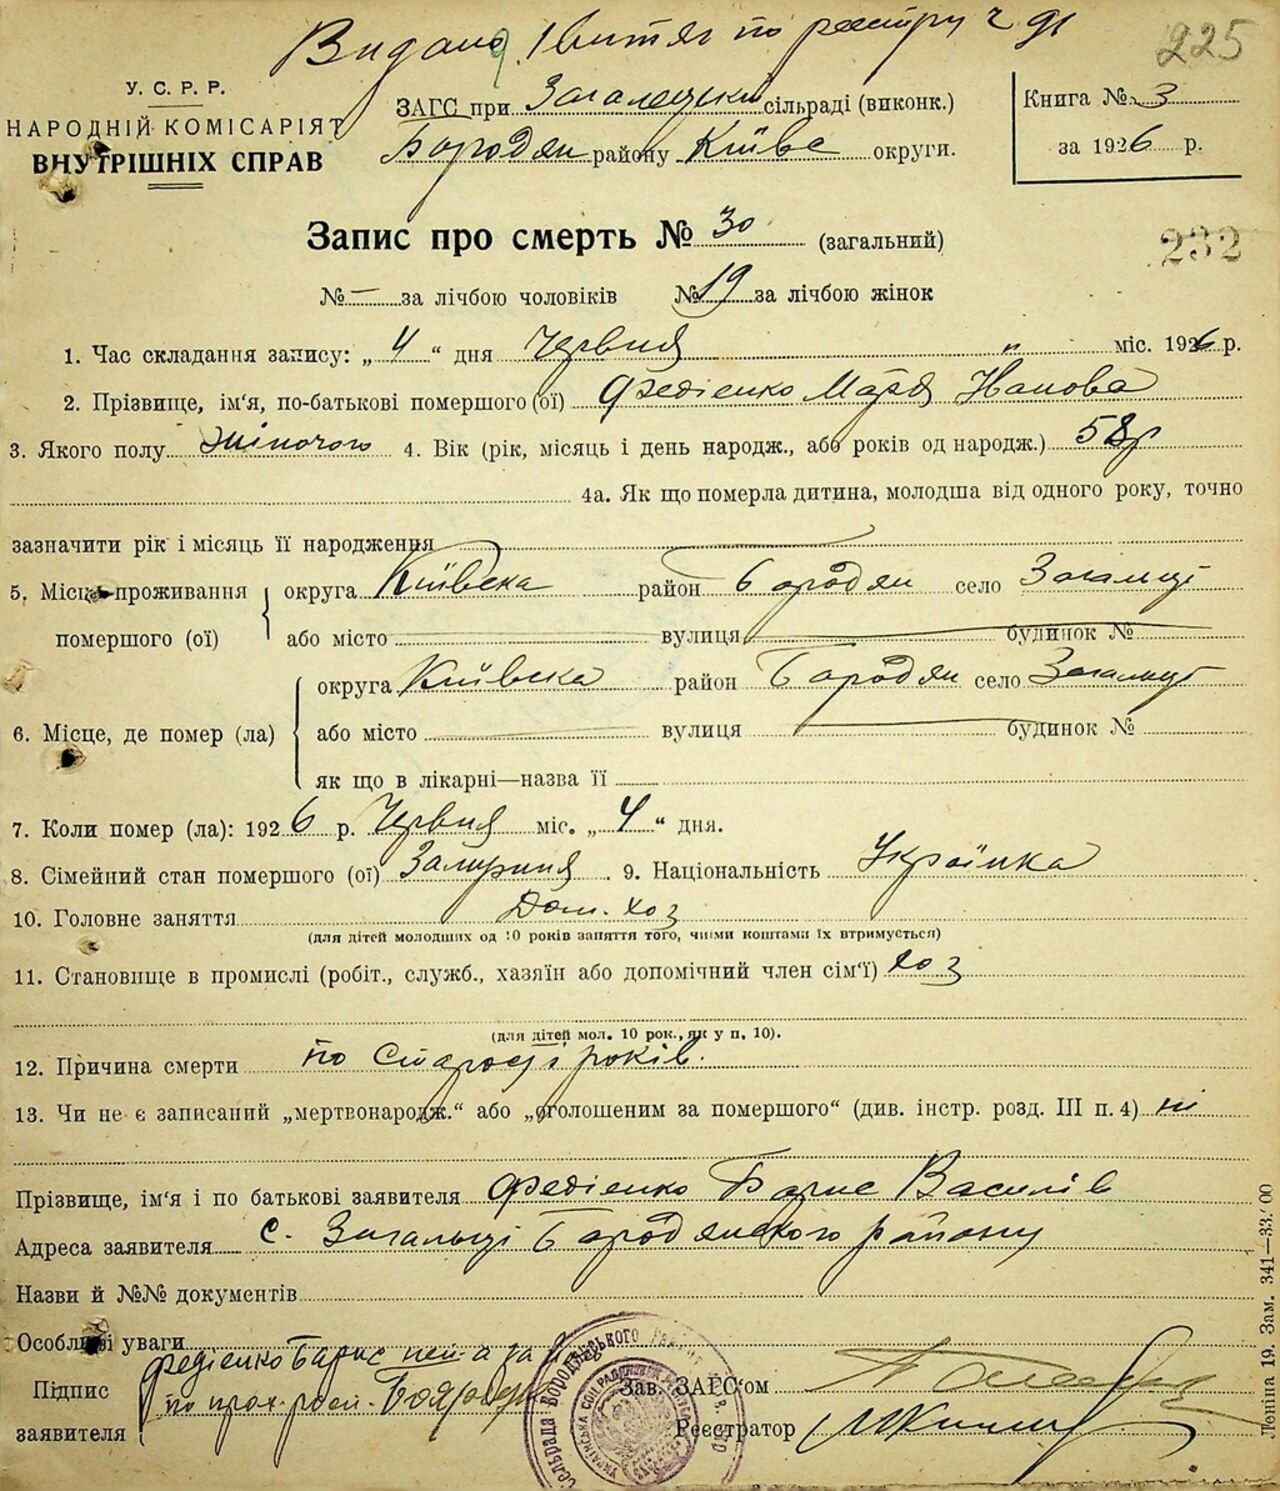 Видано 1 витяг по реєстру ч 91
225
У. С. Р. Р.
НАРОДНІЙ КОМІСАРІЯТ
ВНУТРІШНІХ СПРАВ
ЗАГС при Загалецькій сільраді (виконк.)
Бородян району Київс округи.
Книга № 3
за 1926 р.
Запис про смерть № 30 (загальний)
232
№ — за лічбою чоловіків № 19 за лічбою жінок
1. Час складання запису: „ 4 “ дня Червня " міс. 1926 р.
2. Прізвище, ім'я, по-батькові помершого (ої) Федієнко Марія
3. Якого полу жіночого 4. Вік (рік, місяць і день народж., або років од народж.) 58 р
4а. Як що померла дитина, молодша від одного року, точно
зазначити рік і місяць її народження
5. Місце проживання помершого (ої) округа Київска район Бородян село Загальці
або місто вулиця будинок №
6. Місце, де помер (ла) округа Київска район Бородян село Загальці
або місто вулиця будинок №
як що в лікарні—назва її
7. Коли помер (ла): 1926 р. Червня міс. „ 4 “ дня.
8. Сімейний стан помершого (ої) Замужня . 9. Національність Українка
10. Головне заняття Дом. хоз
(для дітей молодших од 10 років заняття того, чиїми коштами їх втримується)
11. Становище в промислі (робіт., служб., хазяїн або допомічний член сім'ї) хоз
(для дітей мол. 10 рок., як у п. 10).
12. Причина смерти по старости років.
13. Чи не є записаний „мертвонародж.“ або „оголошеним за помершого“ (див. інстр. розд. III п. 4) ні
Прізвище, ім'я і по батькові заявителя Федієнко Борис Василів
Адреса заявителя с. Загальці Бородянского району
Назви й №№ документів
Особливі уваги
Підпис заявителя Федієнко Борис за
по прох.
Зав. ЗАГС'ом
Реєстратор
Леніна 19. Зам. 341—33.